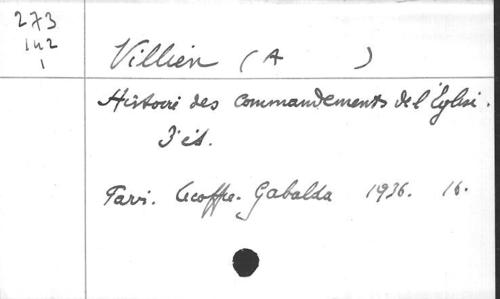 273
142
1
Villien (A )
Histoire des commandements de l'Eglise.
3e éd.
Paris. Lecoffre. Gabalda 1936. 16.